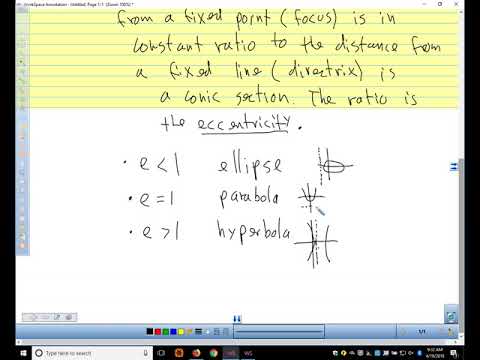 from a fixed point (focus) is in
constant ratio to the distance from
a fixed line (directrix) is
a conic section. The ratio is
the eccentricity.
• e < 1 ellipse
• e = 1 parabola
• e > 1 hyperbola
1/1
Type here to search
9:02 AM
4/19/2018